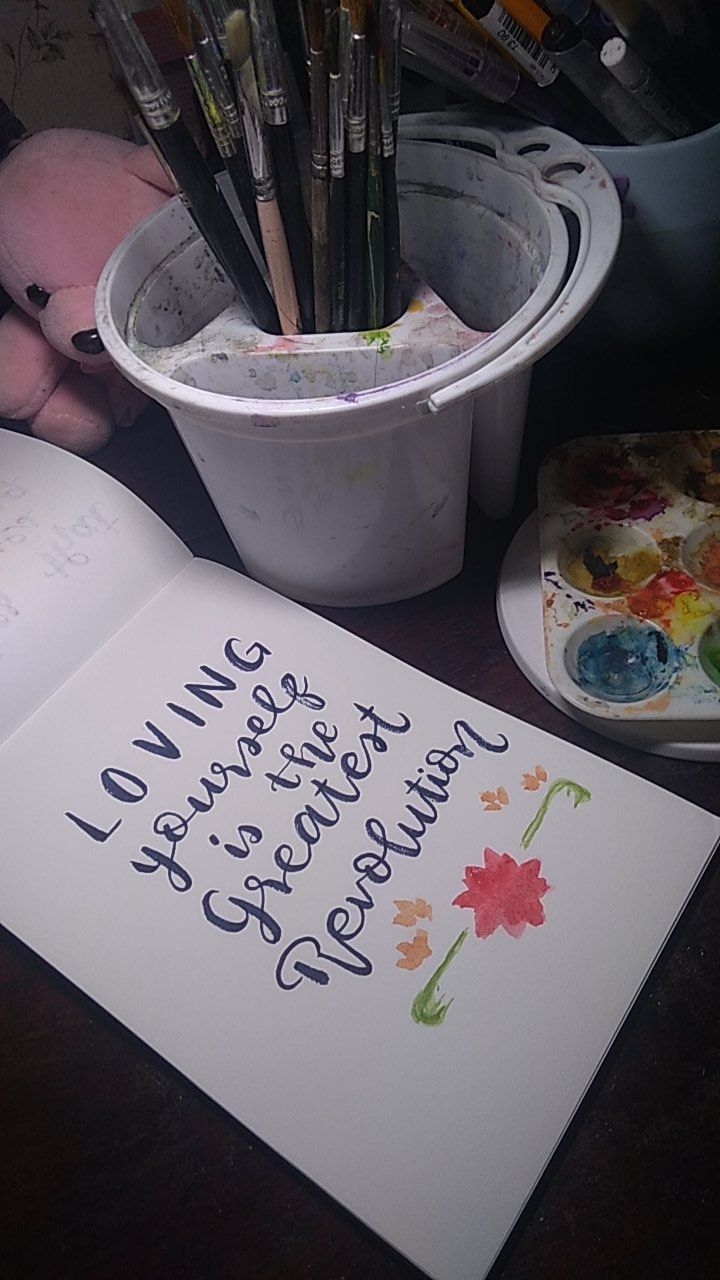 LOVING
yourself
is the
Greatest
Revolution